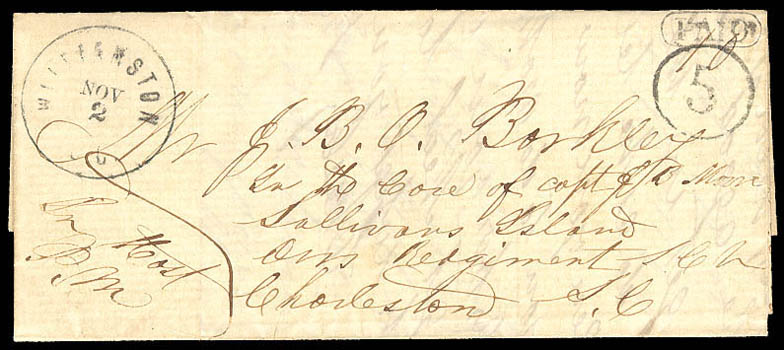 WILLIAMSTON
NOV
2
PAID
5
Mr J. B. O. Barkley
In the Care of capt J B Moor
Sullivans Island
Orrs Redgiment S. C V
Charleston S. C
Host
P. M